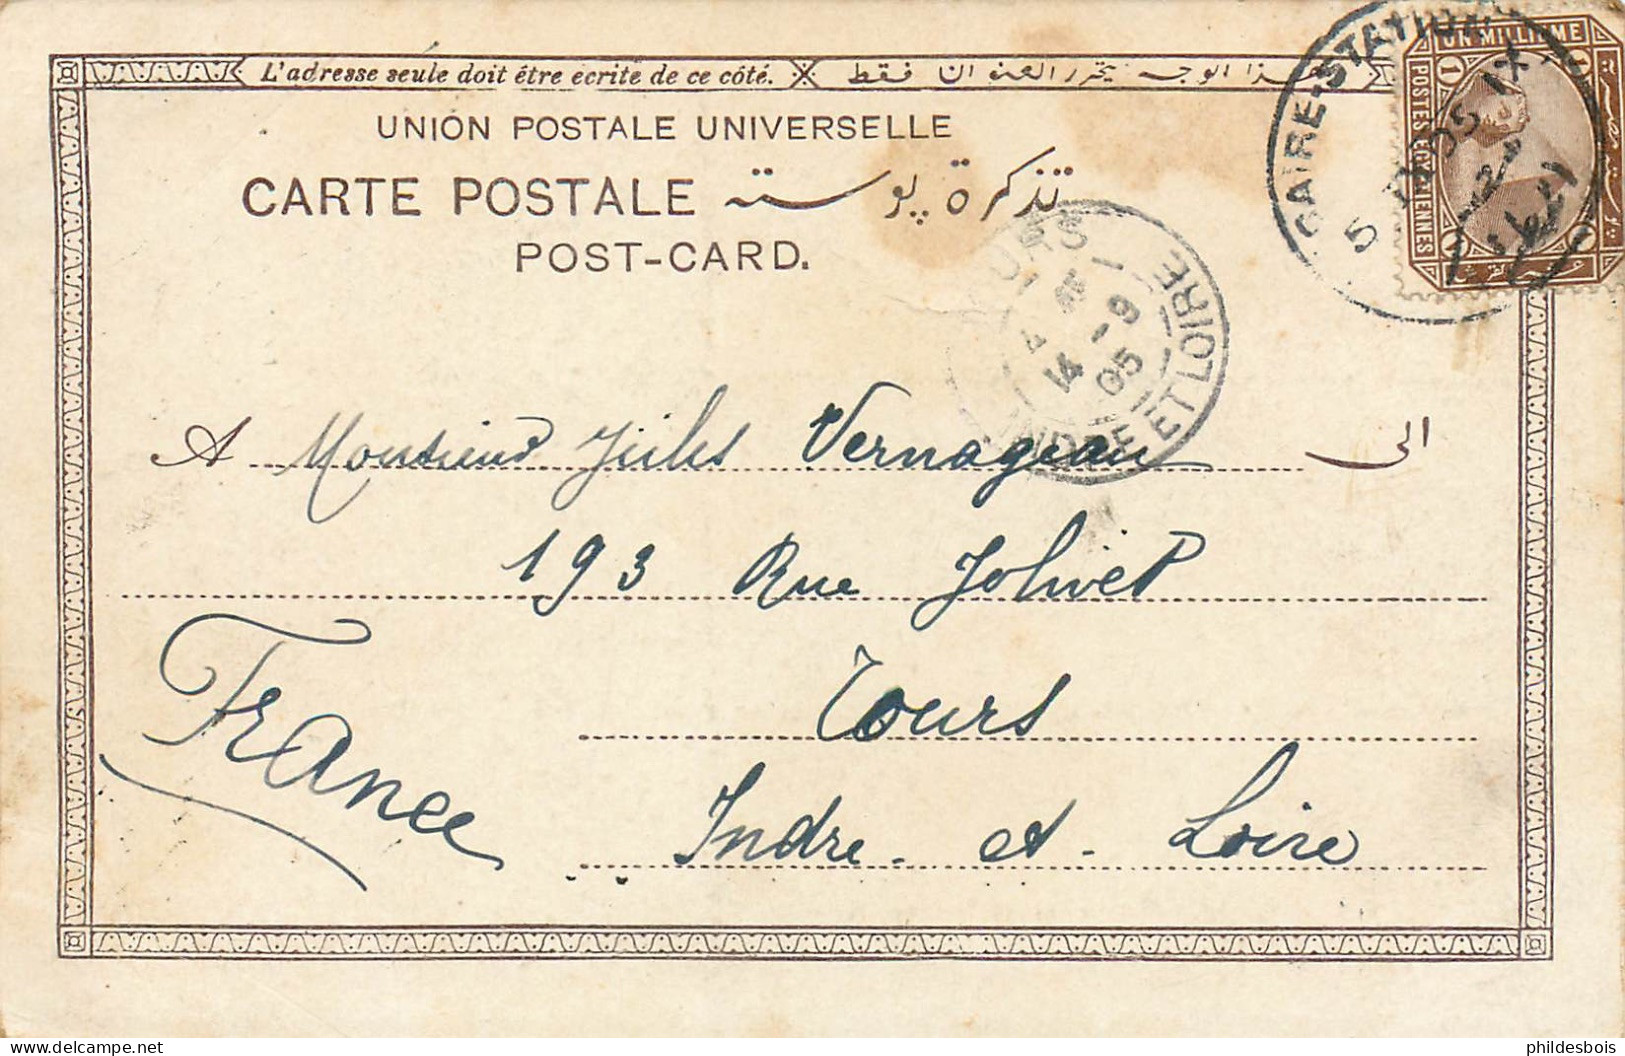 L'adresse seule doit être ecrite de ce côté. هذا الوجه يتحرر العنوان فقط
UNIÓN POSTALE UNIVERSELLE
CARTE POSTALE تذكرة پوسته
POST-CARD.
UN MILLIEME
POSTES EGYPTIENNES
1
CAIRE-STATION
5 05 IX
TOURS
14 - 9
05
INDRE ET LOIRE
A Monsieur Jules Vernageau الى
193 Rue Jolivet
Tours
France
Indre - et - Loire
phildesbois